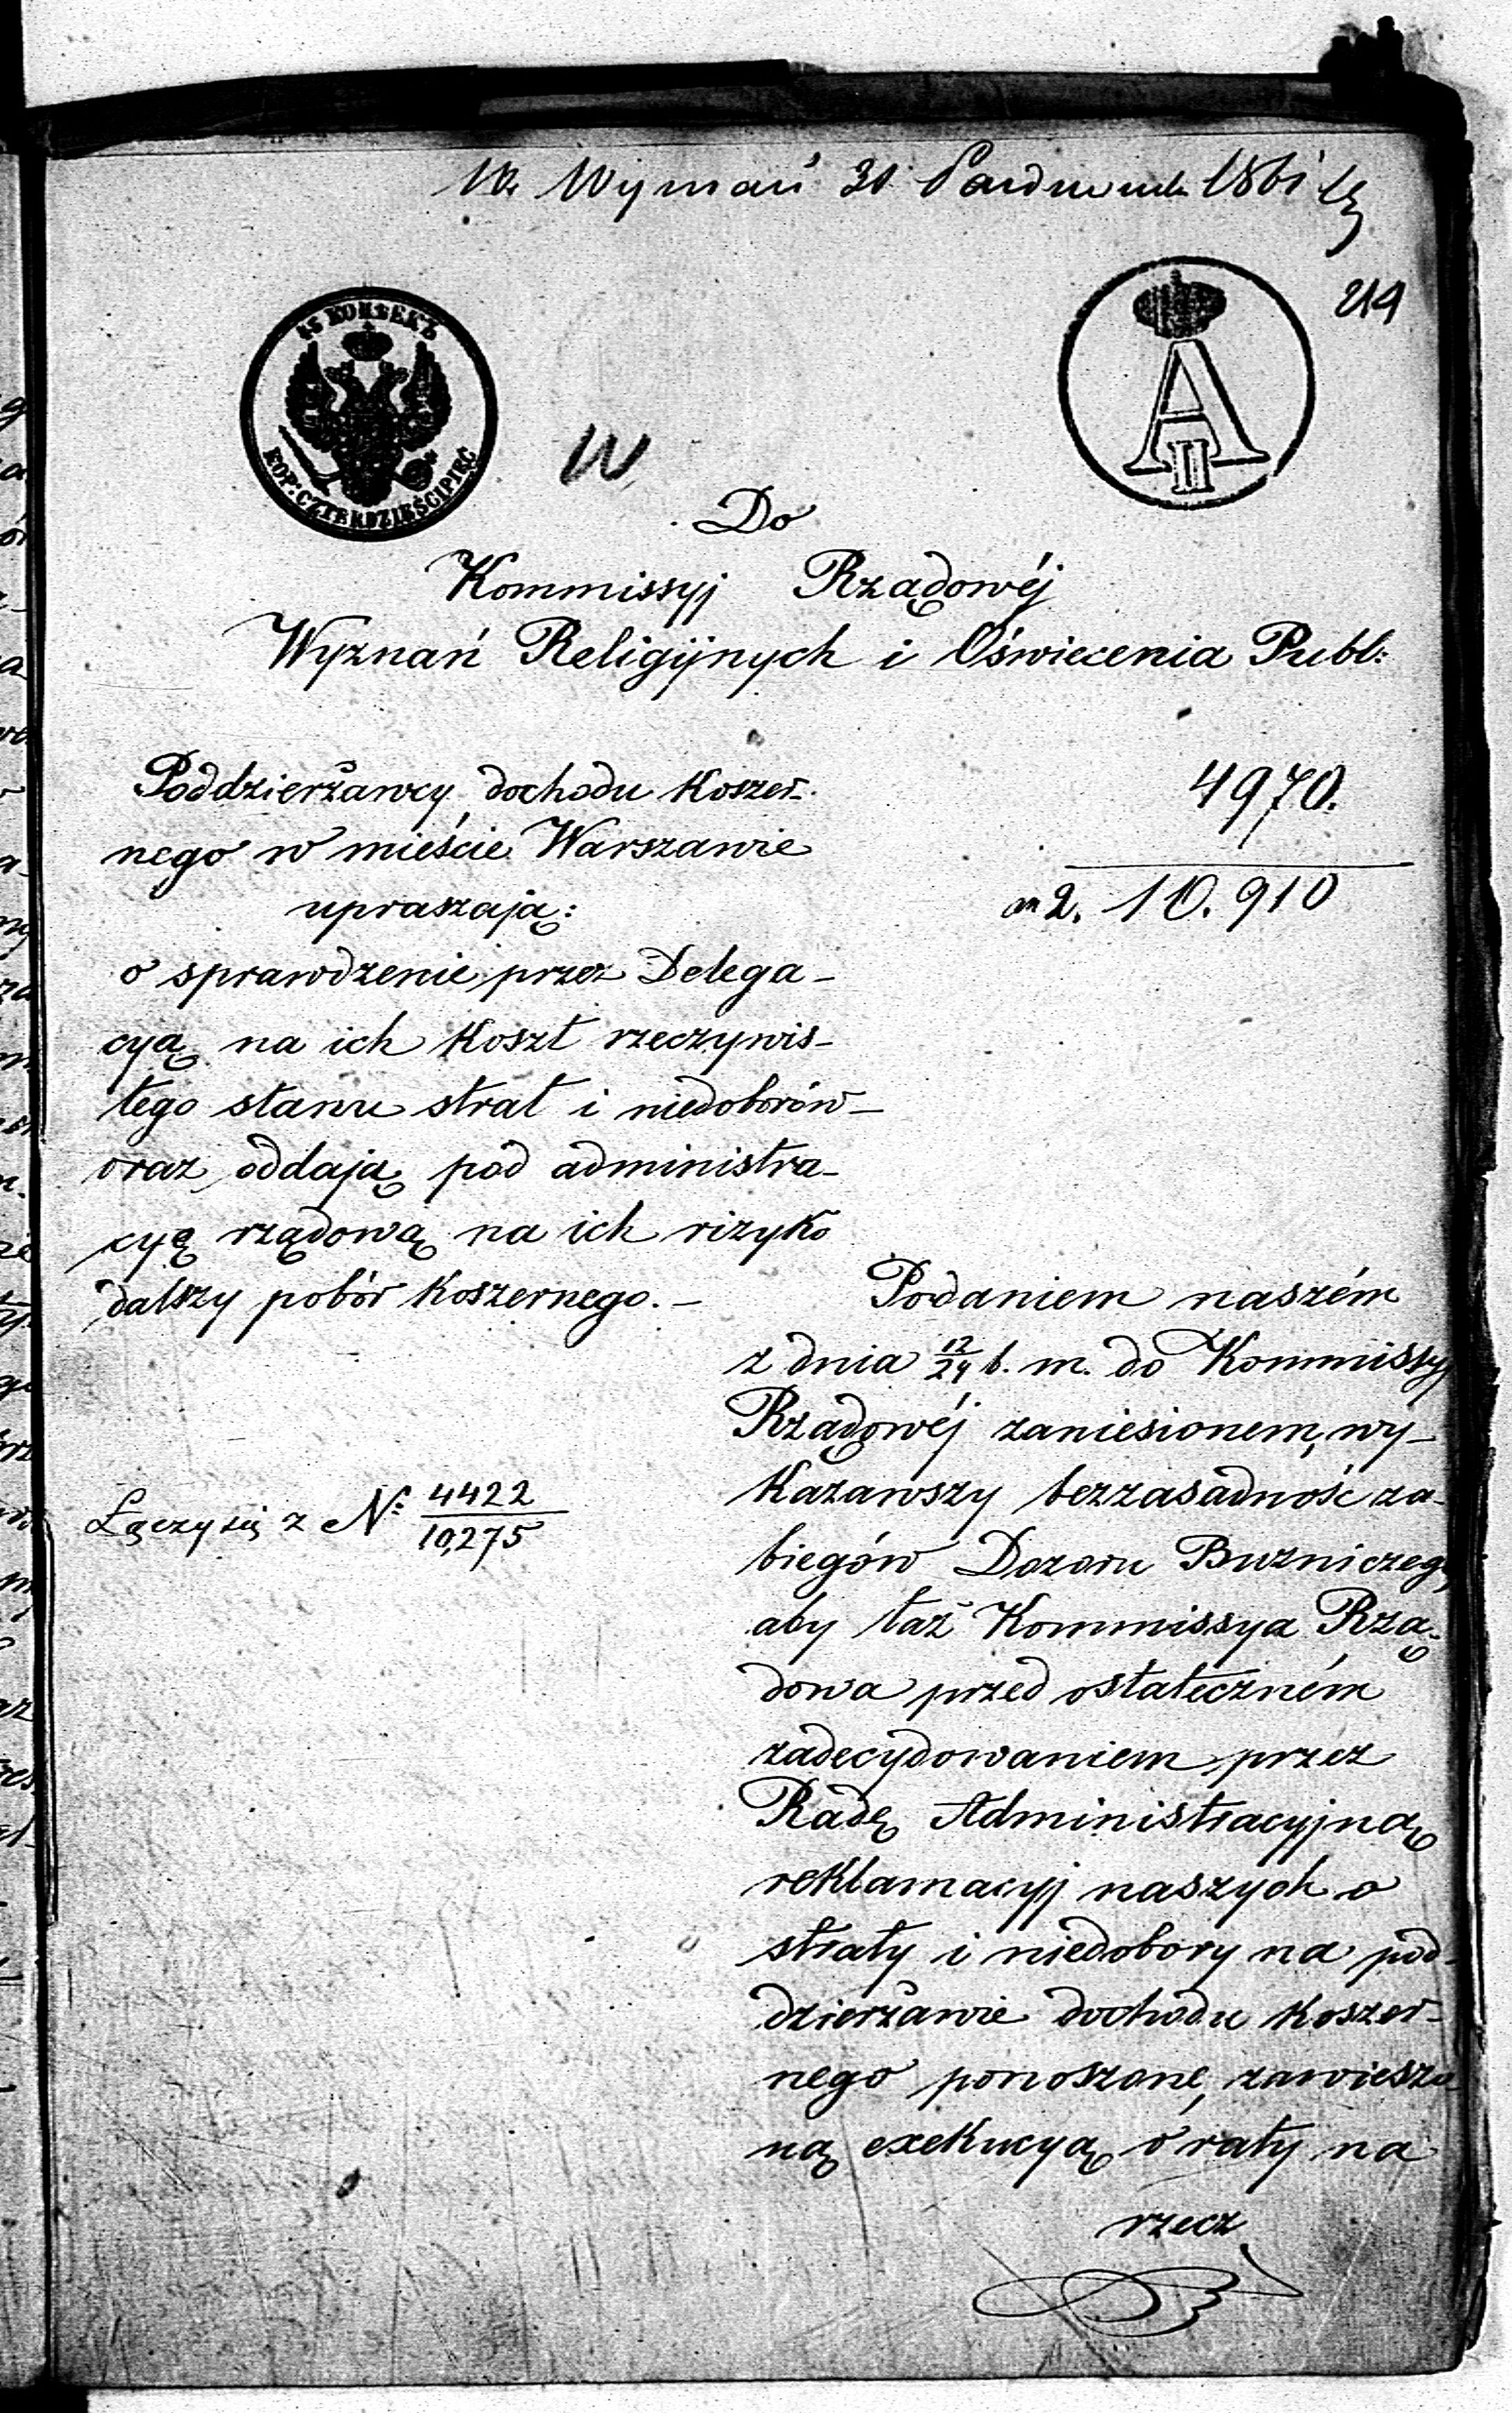 W. Wyznań 31 Październik 1861
219
45 КОПѢЕКЪ
KOP: CZTERDZIEŚCI PIĘĆ
A II
W
Do
Kommissyj Rządowéj
Wyznań Religijnych i Oświecenia Publ:
4970.
10.910
Poddzierżawcy dochodu Koszer-
nego w mieście Warszawie
upraszają:
o sprawdzenie przez Delega-
cyą na ich Koszt rzeczywis-
tego stanu strat i niedoborów
oraz oddają pod administra-
cyę rządową na ich rizyko
dalszy pobór Koszernego. –
Łączy się z N: 4422/10,275
Podaniem naszém
z dnia 12/24 b. m. do Kommissyj
Rządowéj zaniesionem, wy-
Kazawszy bezzasadność za-
biegów Dozoru Bużniczego,
aby taż Kommissya Rzą-
dowa przed ostateczném
zadecydowaniem przez
Radę Administracyjną
reklamacyj naszych o
straty i niedobory na pod-
dzierżawie dochodu Koszer-
nego ponoszone, zawieszo-
ną exekucyą o raty na
rzecz